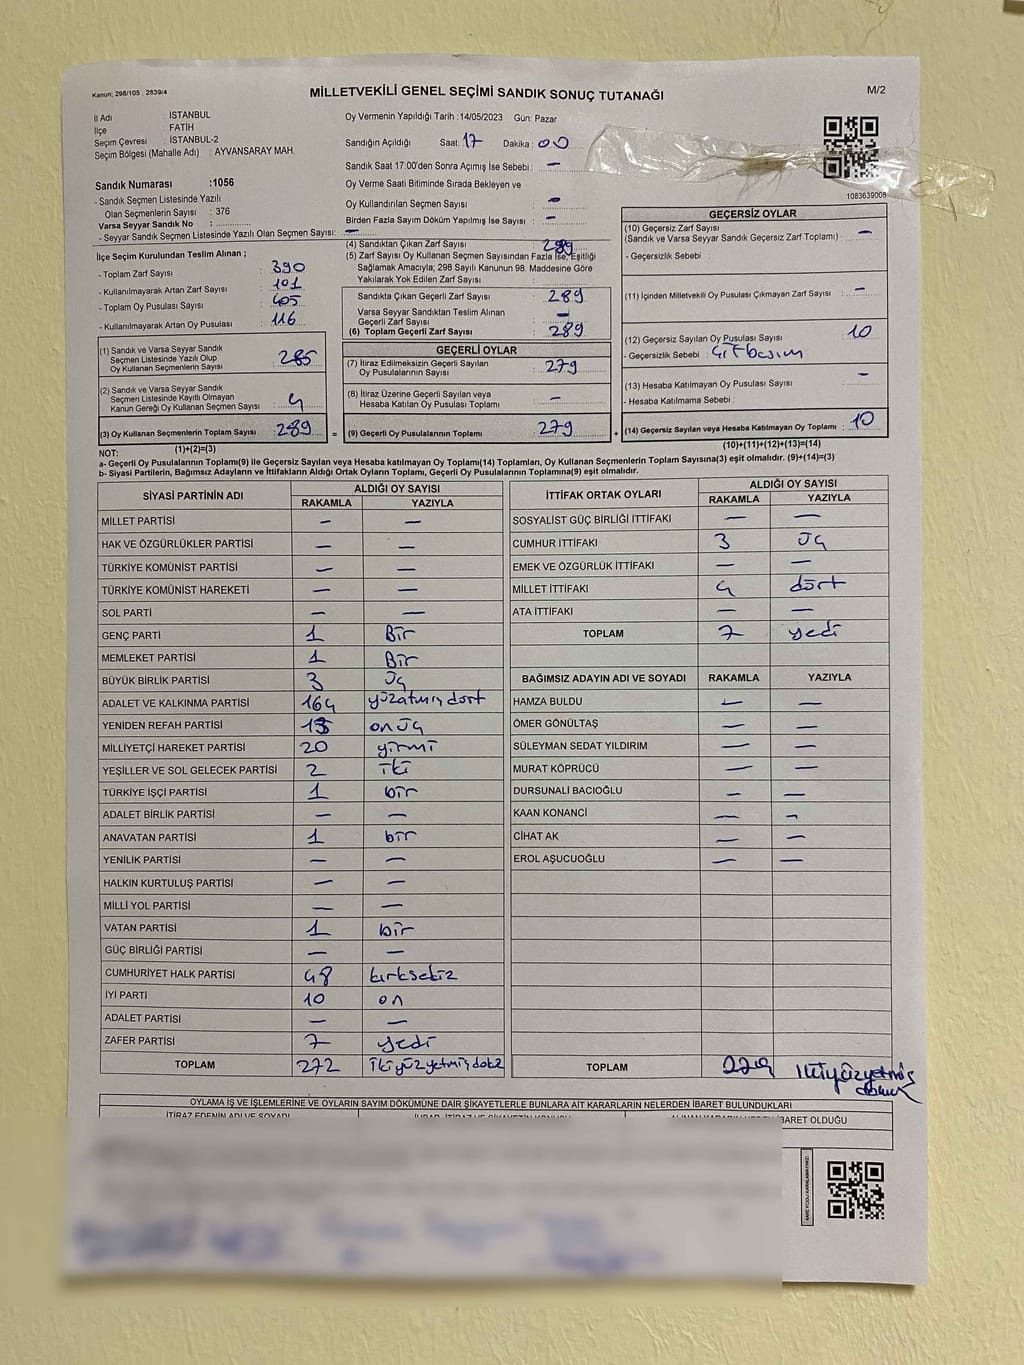 Kanun; 298/105 . 2839/4
MİLLETVEKİLİ GENEL SEÇİMİ SANDIK SONUÇ TUTANAĞI
M/2
İl Adı : İSTANBUL
İlçe : FATİH
Seçim Çevresi : İSTANBUL-2
Seçim Bölgesi (Mahalle Adı) : AYVANSARAY MAH.
Sandık Numarası :1056
- Sandık Seçmen Listesinde Yazılı
Olan Seçmenlerin Sayısı : 376
Varsa Seyyar Sandık No :
- Seyyar Sandık Seçmen Listesinde Yazılı Olan Seçmen Sayısı: —
Oy Vermenin Yapıldığı Tarih :14/05/2023 Gün: Pazar
Sandığın Açıldığı Saat: 17 Dakika : 00
Sandık Saat 17:00'den Sonra Açımış İse Sebebi : —
Oy Verme Saati Bitiminde Sırada Bekleyen ve
Oy Kullandırılan Seçmen Sayısı : —
Birden Fazla Sayım Döküm Yapılmış İse Sayısı : —
1083639008
İlçe Seçim Kurulundan Teslim Alınan ;
- Toplam Zarf Sayısı : 390
- Kullanılmayarak Artan Zarf Sayısı : 101
- Toplam Oy Pusulası Sayısı : 405
- Kullanılmayarak Artan Oy Pusulası : 116
(1) Sandık ve Varsa Seyyar Sandık
Seçmen Listesinde Yazılı Olup
Oy Kullanan Seçmenlerin Sayısı : 285
(2) Sandık ve Varsa Seyyar Sandık
Seçmen Listesinde Kayıtlı Olmayan
Kanun Gereği Oy Kullanan Seçmen Sayısı : 4
(3) Oy Kullanan Seçmenlerin Toplam Sayısı : 289
(4) Sandıktan Çıkan Zarf Sayısı : 289
(5) Zarf Sayısı Oy Kullanan Seçmen Sayısından Fazla İse, Eşitliği
Sağlamak Amacıyla; 298 Sayılı Kanunun 98. Maddesine Göre
Yakılarak Yok Edilen Zarf Sayısı :
Sandıkta Çıkan Geçerli Zarf Sayısı : 289
Varsa Seyyar Sandıktan Teslim Alınan
Geçerli Zarf Sayısı : —
(6) Toplam Geçerli Zarf Sayısı : 289
GEÇERLİ OYLAR
(7) İtiraz Edilmeksizin Geçerli Sayılan
Oy Pusulalarının Sayısı : 279
(8) İtiraz Üzerine Geçerli Sayılan veya
Hesaba Katılan Oy Pusulası Toplamı : —
= (9) Geçerli Oy Pusulalarının Toplamı : 279
GEÇERSİZ OYLAR
(10) Geçersiz Zarf Sayısı
(Sandık ve Varsa Seyyar Sandık Geçersiz Zarf Toplamı) : —
- Geçersizlik Sebebi
(11) İçinden Milletvekili Oy Pusulası Çıkmayan Zarf Sayısı : —
(12) Geçersiz Sayılan Oy Pusulası Sayısı : 10
- Geçersizlik Sebebi : çift basım
(13) Hesaba Katılmayan Oy Pusulası Sayısı : —
- Hesaba Katılmama Sebebi :
+ (14) Geçersiz Sayılan veya Hesaba Katılmayan Oy Toplamı : 10
NOT: (1)+(2)=(3) (10)+(11)+(12)+(13)=(14)
a- Geçerli Oy Pusulalarının Toplamı(9) ile Geçersiz Sayılan veya Hesaba katılmayan Oy Toplamı(14) Toplamları, Oy Kullanan Seçmenlerin Toplam Sayısına(3) eşit olmalıdır. (9)+(14)=(3)
b- Siyasi Partilerin, Bağımsız Adayların ve İttifakların Aldığı Ortak Oyların Toplamı, Geçerli Oy Pusulalarının Toplamına(9) eşit olmalıdır.
SİYASİ PARTİNİN ADI ALDIĞI OY SAYISI
RAKAMLA YAZIYLA
MİLLET PARTİSİ — —
HAK VE ÖZGÜRLÜKLER PARTİSİ — —
TÜRKİYE KOMÜNİST PARTİSİ — —
TÜRKİYE KOMÜNİST HAREKETİ — —
SOL PARTİ — —
GENÇ PARTİ 1 Bir
MEMLEKET PARTİSİ 1 Bir
BÜYÜK BİRLİK PARTİSİ 3 üç
ADALET VE KALKINMA PARTİSİ 164 yüzatmış dört
YENİDEN REFAH PARTİSİ 13 on üç
MİLLİYETÇİ HAREKET PARTİSİ 20 yirmi
YEŞİLLER VE SOL GELECEK PARTİSİ 2 iki
TÜRKİYE İŞÇİ PARTİSİ 1 bir
ADALET BİRLİK PARTİSİ — —
ANAVATAN PARTİSİ 1 bir
YENİLİK PARTİSİ — —
HALKIN KURTULUŞ PARTİSİ — —
MİLLİ YOL PARTİSİ — —
VATAN PARTİSİ 1 bir
GÜÇ BİRLİĞİ PARTİSİ — —
CUMHURİYET HALK PARTİSİ 48 kırksekiz
İYİ PARTİ 10 on
ADALET PARTİSİ — —
ZAFER PARTİSİ 7 yedi
TOPLAM 272 ikiyüzyetmiş
İTTİFAK ORTAK OYLARI ALDIĞI OY SAYISI
RAKAMLA YAZIYLA
SOSYALİST GÜÇ BİRLİĞİ İTTİFAKI — —
CUMHUR İTTİFAKI 3 üç
EMEK VE ÖZGÜRLÜK İTTİFAKI — —
MİLLET İTTİFAKI 4 dört
ATA İTTİFAKI — —
TOPLAM 7 yedi
BAĞIMSIZ ADAYIN ADI VE SOYADI RAKAMLA YAZIYLA
HAMZA BULDU — —
ÖMER GÖNÜLTAŞ — —
SÜLEYMAN SEDAT YILDIRIM — —
MURAT KÖPRÜCÜ — —
DURSUNALİ BACIOĞLU — —
KAAN KONANCİ — -
CİHAT AK — —
EROL AŞUCUOĞLU — —
TOPLAM 279 ikiyüzyetmiş
OYLAMA İŞ VE İŞLEMLERİNE VE OYLARIN SAYIM DÖKÜMÜNE DAİR ŞİKAYETLERLE BUNLARA AİT KARARLARIN NELERDEN İBARET BULUNDUKLARI
İTİRAZ EDENİN ADI VE SOYADI
İBARET OLDUĞU